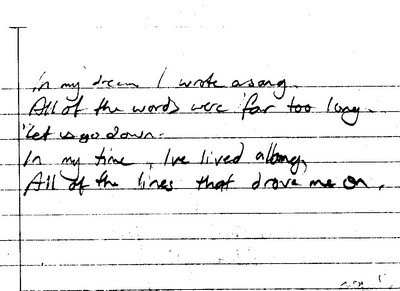 in my dream I wrote a song.
All of the words were far too long.
Let us go down.
In my time, Ive lived along,
All of the lines that drove me on.